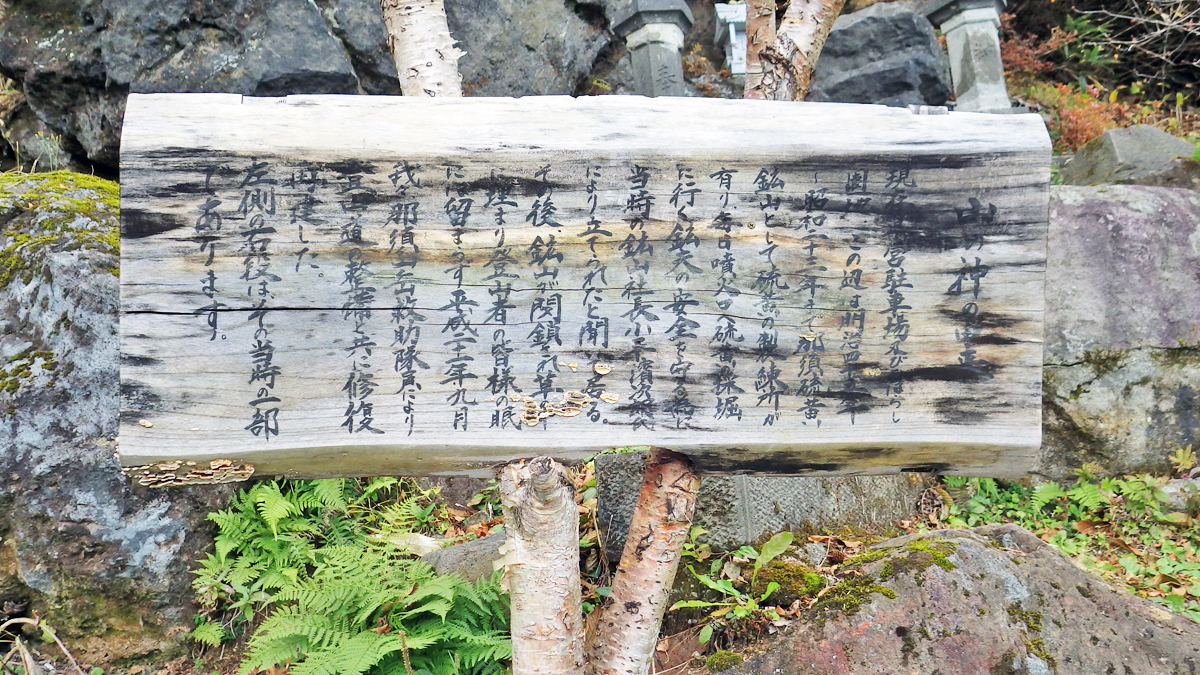 山の神の由来
現在県営駐車場及びはらし
園地、この辺は明治四
~昭和十二年まで那須硫黄
鉱山として硫黄の製錬所が
有り、毎日噴火口で硫黄を採掘
に行く鉱夫の安全を守る為に
当時の鉱山社長小
により立てられたと聞いて居る。
その後、鉱山が閉鎖され草の中
に埋まり登山者の皆様の眼
に留まらず平成二十年九月
我々那須山岳救助隊員により
登山道の整備と共に修復
再建した。
左側の石段はその当時の一部
であります。